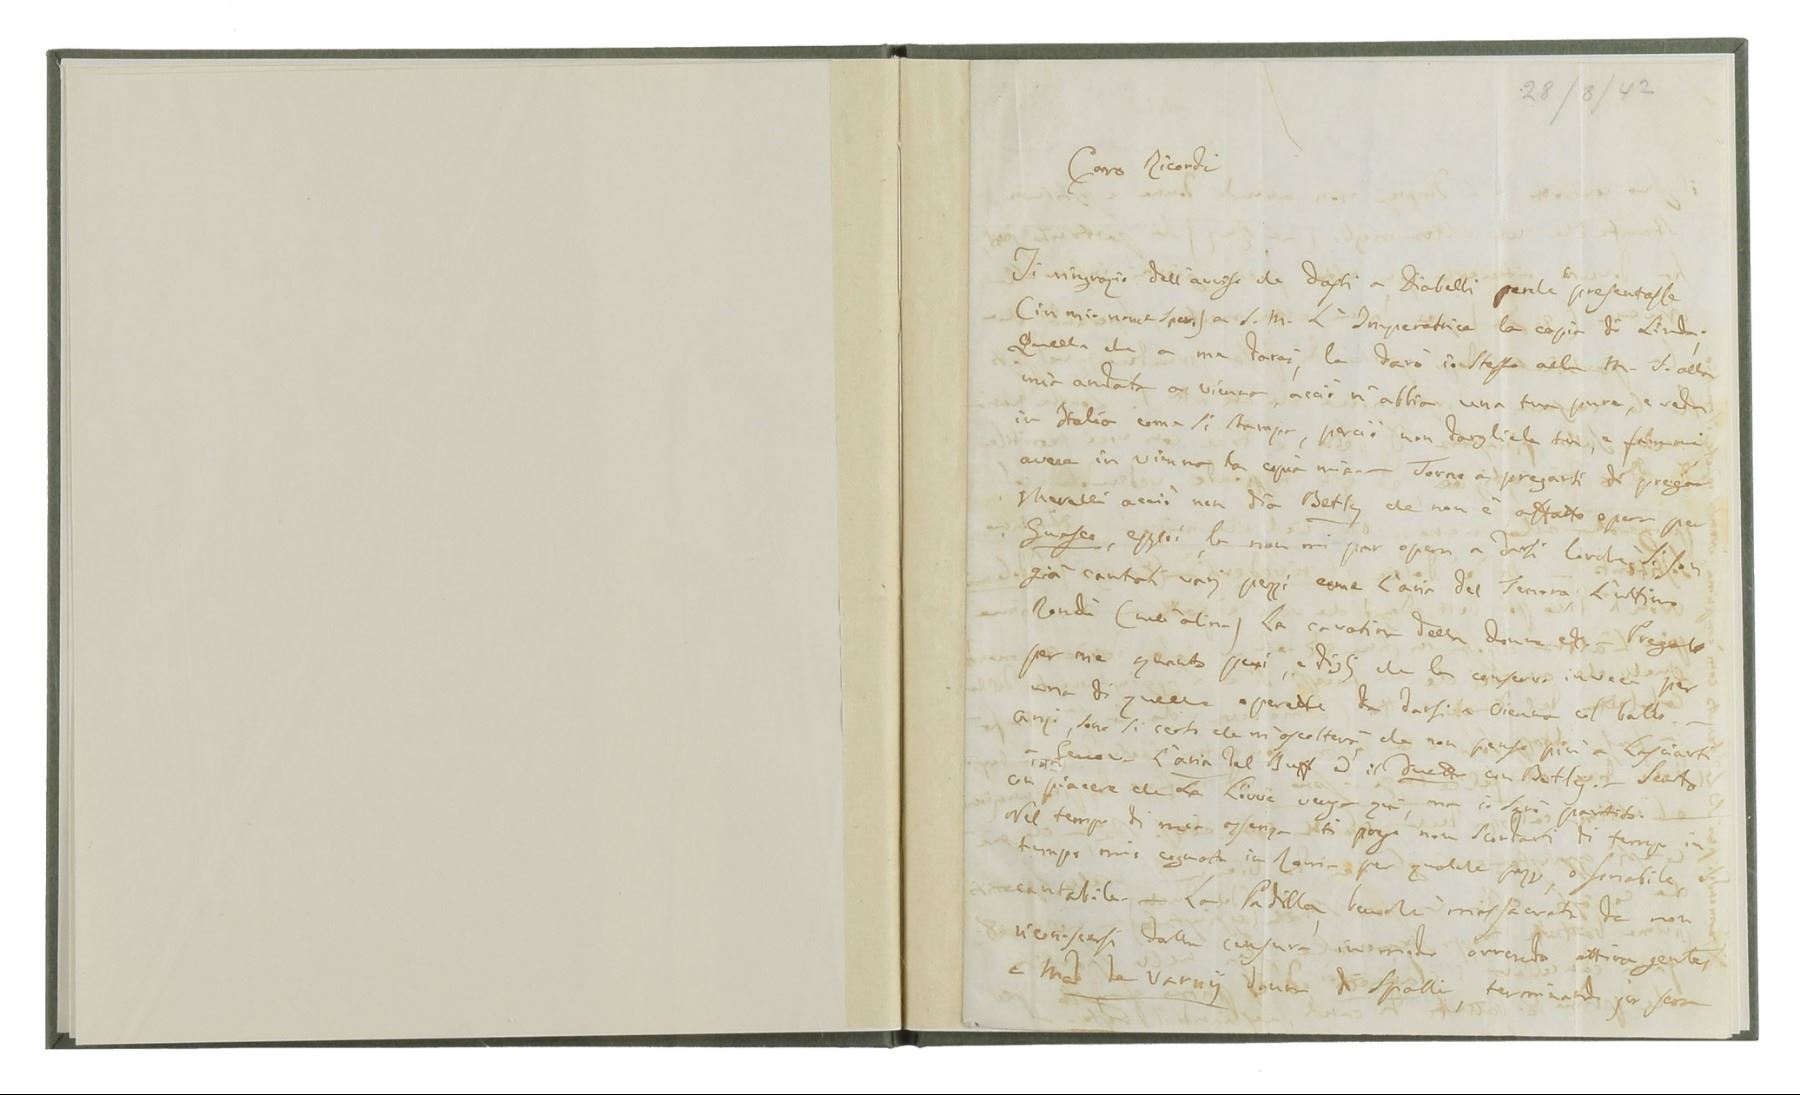 28/8/42
Caro Ricordi
Ti ringrazio dell'avviso che dasti a Diabelli perche presentasse
(in mio nome spero) a S. M. L'Imperatrice la copia di Linda;
Quella che a me darai, la darò io stesso alla M. S. alla
mia andata a Vienna, acciò n'abbia una tua pure, e veda
in Italia come si stampa, perciò non dargliela tu, e fammi
avere in Vienna la copia mia — Torno a pregarti di pregar
Merelli acciò non dia Betly che non è affatto opera per
Guasco, e poi, la non mi par opera a darsi lorchè si son
già cantati varj pezzi come L'aria del Tenore, L'ultimo
Rondò (nell'Alina) La cavatina della Donna etc — Pregalo
per me quanto puoi, e digli che la conservi invece per
una di quelle operette da darsi a Vienna col ballo. —
anzi, sono sì certo che m'ascolterà, che non penso più a lasciarti
L'aria del Buffo ed il Duetto con Betly. — Sento
con piacere che La Löwe venga quà, ma io sarò partito. —
Nel tempo di mia assenza ti prego non scordarti di tempo in
tempo mio cognato in Roma per qualche pezzo, o suonabile, o
cantabile — La Padilla, benchè massacrata da non
riconoscersi dalla censura in modo orrendo attira gente,
e Mad de Varny donna di Spalli, terminando jer sera